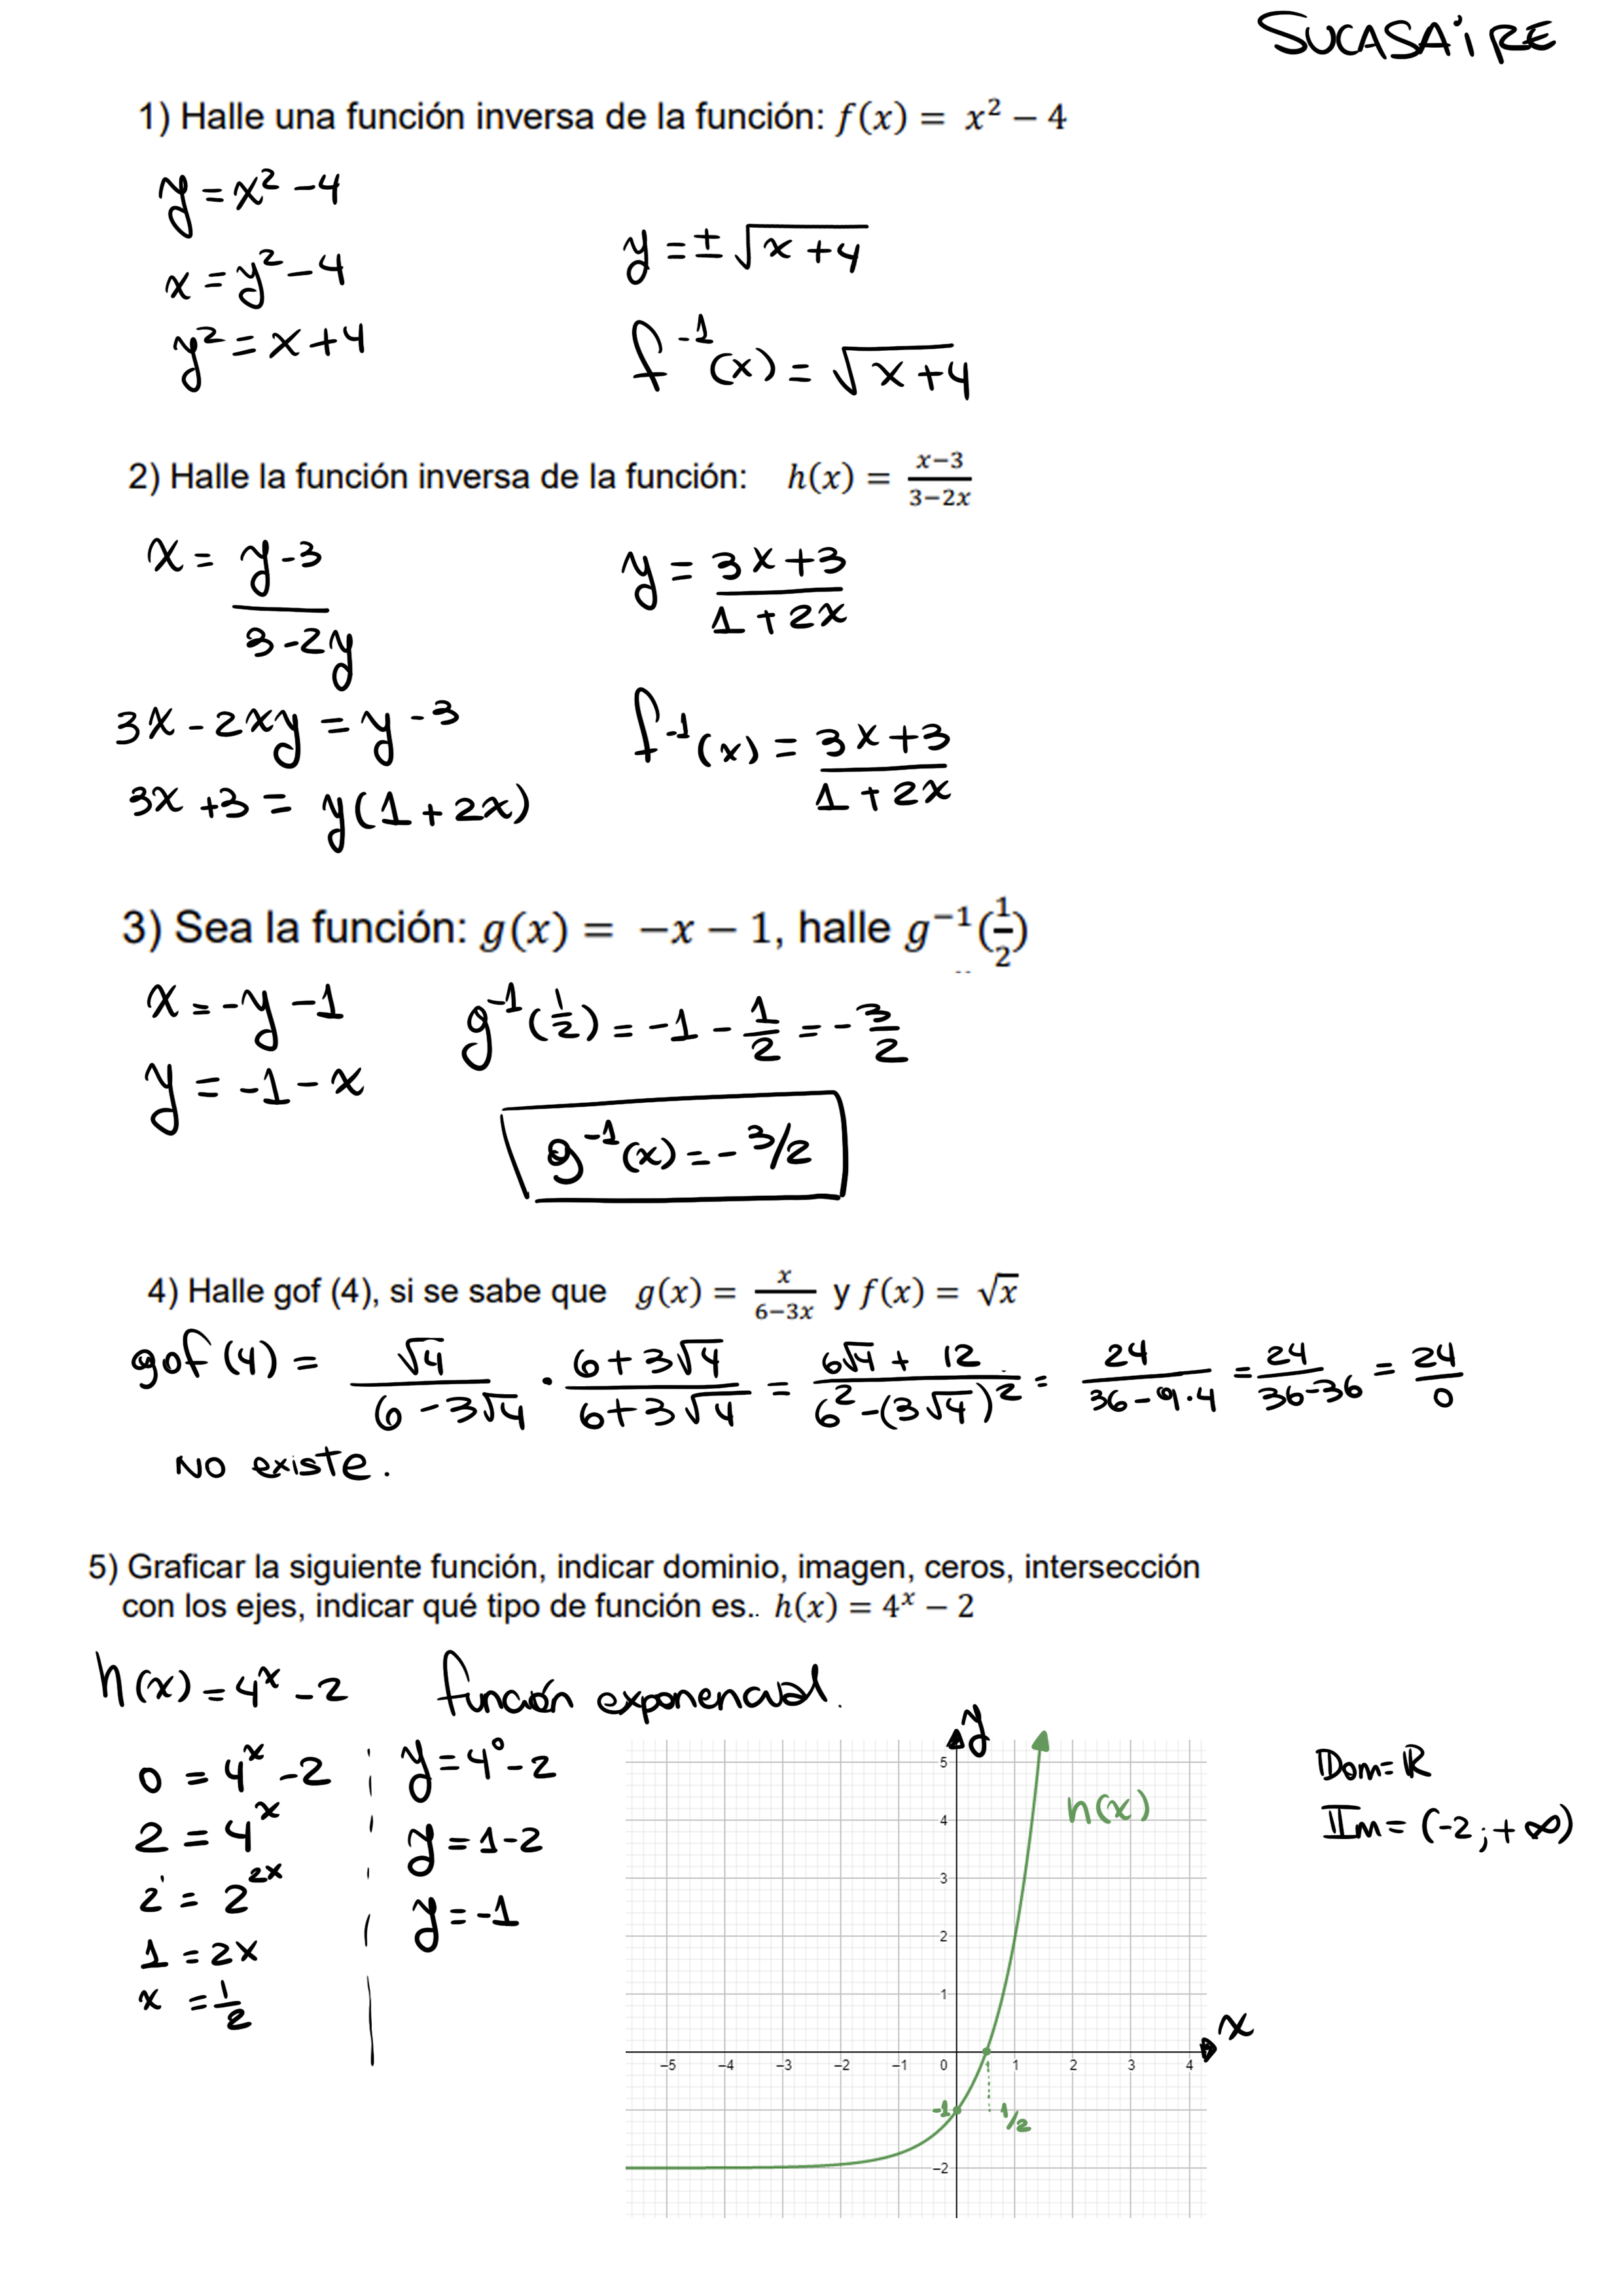 SUCASAiRE
1) Halle una función inversa de la función: f(x) = x² − 4
y = x² − 4
x = y² − 4
y² = x + 4
y = ± √(x + 4)
f⁻¹(x) = √(x + 4)
2) Halle la función inversa de la función: h(x) = (x−3)/(3−2x)
x = (y − 3)/(3 − 2y)
3x − 2xy = y − 3
3x + 3 = y(1 + 2x)
y = (3x + 3)/(1 + 2x)
f⁻¹(x) = (3x + 3)/(1 + 2x)
3) Sea la función: g(x) = −x − 1, halle g⁻¹(1/2)
x = −y − 1
y = −1 − x
g⁻¹(1/2) = −1 − 1/2 = −3/2
g⁻¹(x) = −3/2
4) Halle gof (4), si se sabe que g(x) = x/(6−3x) y f(x) = √x
gof (4) = √4/(6 − 3√4) · (6 + 3√4)/(6 + 3√4) = (6√4 + 12)/(6² − (3√4)²) = 24/(36 − 9·4) = 24/(36 − 36) = 24/0
No existe.
5) Graficar la siguiente función, indicar dominio, imagen, ceros, intersección
con los ejes, indicar qué tipo de función es.. h(x) = 4ˣ − 2
h(x) = 4ˣ − 2 función exponencial.
0 = 4ˣ − 2
2 = 4ˣ
2¹ = 2²ˣ
1 = 2x
x = 1/2
y = 4⁰ − 2
y = 1 − 2
y = −1
y
5
4
3
2
1
h(x)
x
−5 −4 −3 −2 −1 0 1 2 3 4
−1
1/2
−2
Dom = ℝ
Im = (−2 ; +∞)